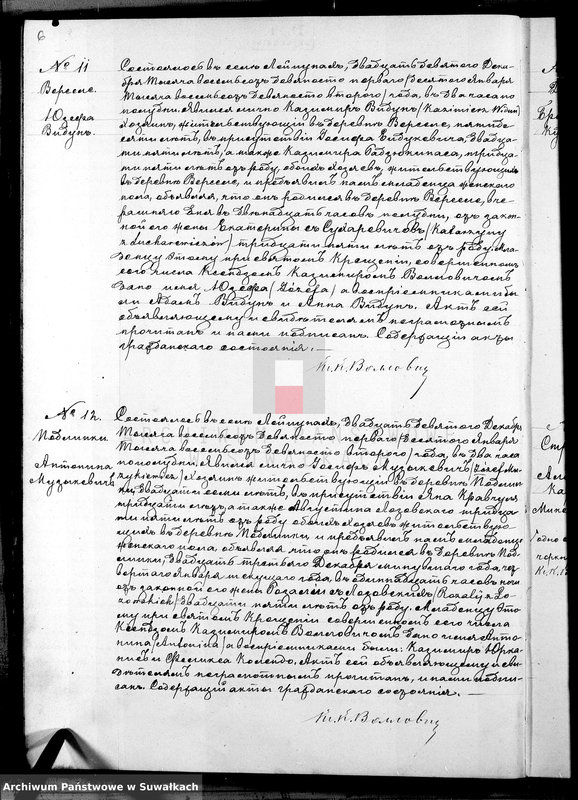 6
№ 11
Вересне.
Юзефа
Видунъ.
Состоялось въ селѣ Лейпунахъ, двадцать девятаго Дека-
бря тысяча восемьсотъ девяносто перваго /десятаго Января
тысяча восемьсотъ девяносто втораго/ года, въ два часа по
полудни. Явился лично Казимиръ Видунъ /Kazimierz Widun/
хозяинъ, жительствующій въ деревнѣ Вересне,
лѣтъ, въ присутствіи Іосифа
лѣтъ, а также Казимира тридца-
ти пяти лѣтъ отъ роду, обоихъ хозяевъ, жительствующихъ
въ деревнѣ Вересне, и предъявилъ намъ младенца женскаго
пола, объявляя, что онъ родился въ деревнѣ Вересне, вче-
рашняго дня въ двенадцать часовъ полудни, отъ закон-
ной его жены Екатерины съ Сухаревичовъ /Katarzyny
z Sucharewiczów/ тридцати пяти лѣтъ отъ роду. Мла-
денцу этому при святомъ Крещеніи, совершенномъ
сего числа Ксендзомъ Казимиромъ Волловичемъ
дано имя Юзефа /Józefa/ а воспріемниками бы-
ли Адамъ Видунъ и Анна Видунъ. Актъ сей
объявляющему и свидѣтелямъ неграмотнымъ
прочитанъ и нами подписанъ. Содержащій акты
гражданскаго состоянія. —
Кс. К. Волловиц
№ 12.
Подлипки.
Антонина
Музыкевичъ
Состоялось въ селѣ Лейпунахъ, двадцать девятаго Декабря
тысяча восемьсотъ девяносто перваго /десятаго Января
тысяча восемьсотъ девяносто втораго/ года, въ два часа
пополудни. Явился лично Іосифъ Музыкевичъ /Józef Mu-
zykiewicz/ хозяинъ жительствующій въ деревнѣ
двадцати семи лѣтъ, въ присутствіи Яна Кравчуля
тридцати лѣтъ, а также Августина Лозовскаго тридца-
ти пяти лѣтъ отъ роду обоихъ хозяевъ жительствую-
щихъ въ деревнѣ и предъявилъ намъ младенца
женскаго пола, объявляя что онъ родился въ деревнѣ
двадцать третьяго Декабря минувшаго года /чет-
вертаго Января текущаго года, въ одиннадцать часовъ ночи
отъ законной его жены Розаліи съ Лозовскихъ /Rozalij z Ło-
zowskich/ двадцати пяти лѣтъ отъ роду. Младенцу это-
му при святомъ Крещеніи совершенномъ сего числа
Ксендзомъ Казимиромъ Волловичомъ дано имя Анто-
нина /Antonina/ а воспріемниками были: Казимиръ
и Фелиkca Колендо. Актъ сей объявляющему и сви-
дѣтелямъ неграмотнымъ прочитанъ, и нами подпи-
санъ. Содержащій акты гражданскаго состоянія. —
Кс. К. Волловиц
Archiwum Państwowe w Suwałkach